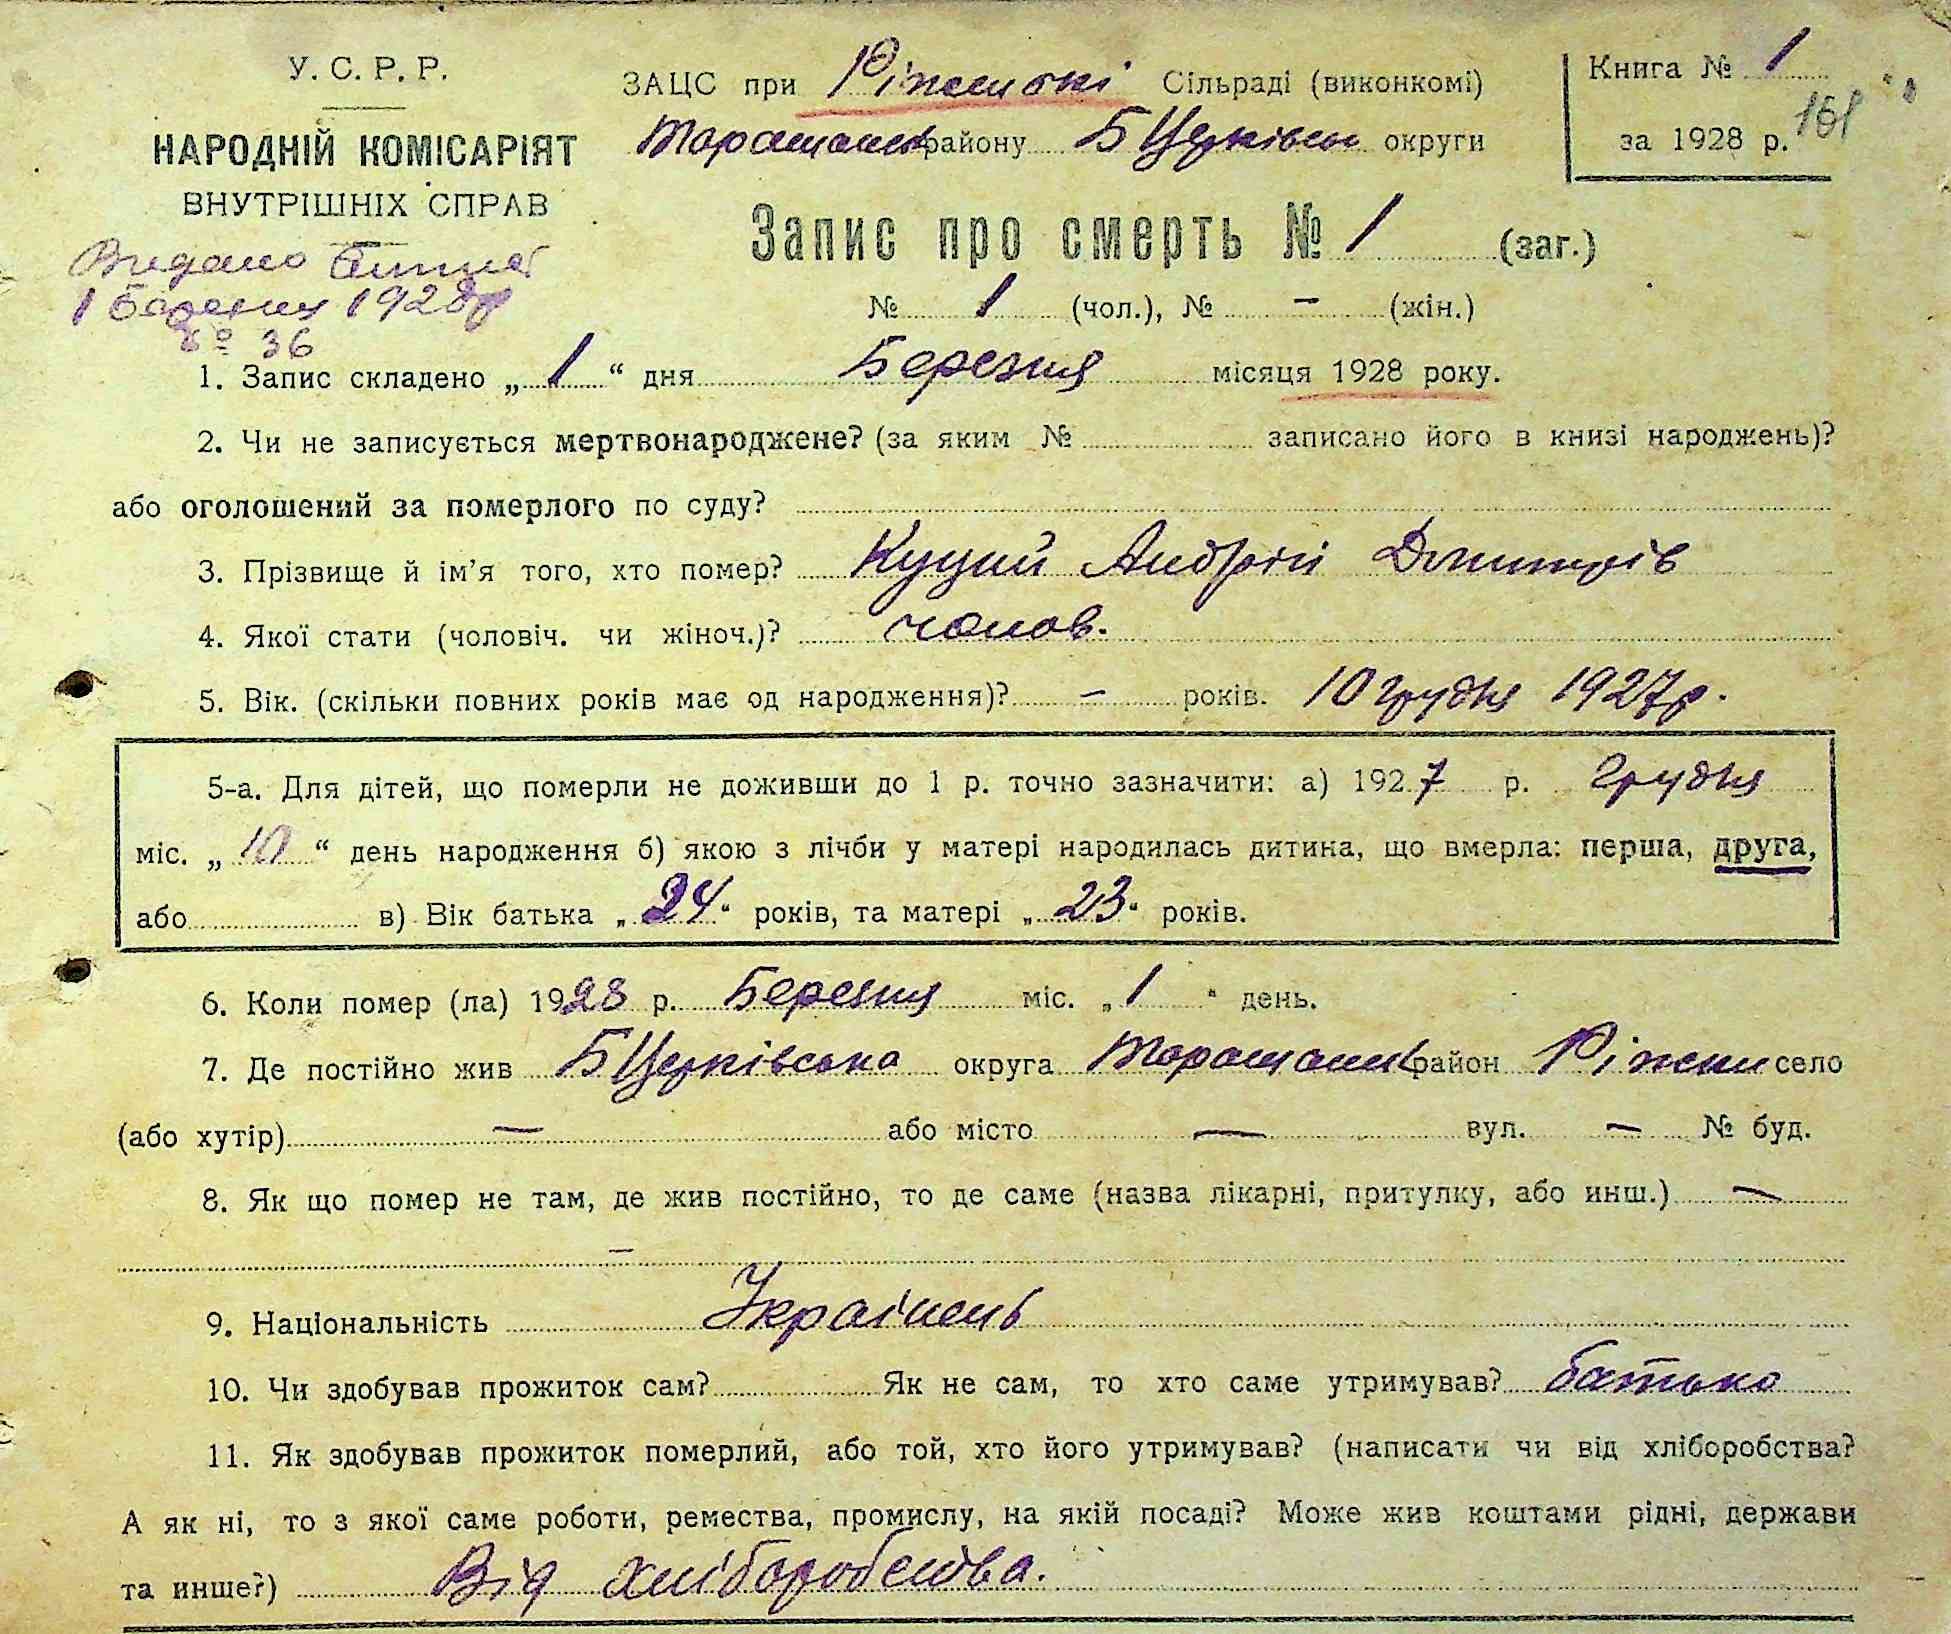 У. С. Р. Р.
НАРОДНІЙ КОМІСАРІЯТ
ВНУТРІШНІХ СПРАВ
Видано
1 Березня 1928 р
№ 36
ЗАЦС при Ріжській Сільраді (виконкомі)
Таращанськ району БЦерківськ округи
Книга № 1
за 1928 р.
161
Запис про смерть № 1 (заг.)
№ 1 (чол.), № – (жін.)
1. Запис складено „ 1 “ дня Березня місяця 1928 року.
2. Чи не записується мертвонароджене? (за яким № записано його в книзі народжень)?
або оголошений за померлого по суду?
3. Прізвище й ім’я того, хто помер? Куций Андрій Дмитрів
4. Якої стати (чоловіч. чи жіноч.)? чолов.
5. Вік. (скільки повних років має од народження)? – років. 10 грудня 1927 р.
5-а. Для дітей, що померли не доживши до 1 р. точно зазначити: а) 1927 р. Грудня
міс. „ 10 “ день народження б) якою з лічби у матері народилась дитина, що вмерла: перша, друга,
або в) Вік батька „ 24 “ років, та матері „ 23 “ років.
6. Коли помер (ла) 1928 р. Березня міс. „ 1 “ день.
7. Де постійно жив БЦерківська округа Таращанськ район Ріжки село
(або хутір) – або місто – вул. – № буд.
8. Як що помер не там, де жив постійно, то де саме (назва лікарні, притулку, або инш.) –
–
9. Національність Українець
10. Чи здобував прожиток сам? Як не сам, то хто саме утримував? батько
11. Як здобував прожиток померлий, або той, хто його утримував? (написати чи від хліборобства?
А як ні, то з якої саме роботи, ремества, промислу, на якій посаді? Може жив коштами рідні, держави
та инше?) Від хліборобства.